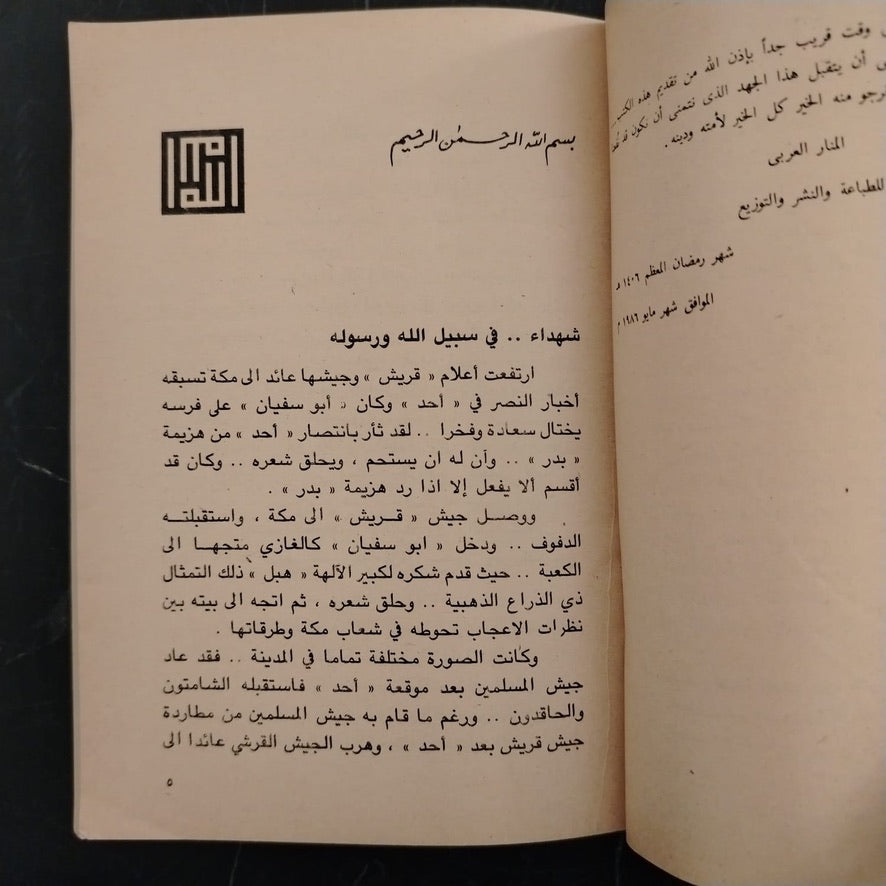 وقت قريب جداً بإذن الله من تقديم هذه الكتب
أن يتقبل هذا الجهد الذى نتمنى أن نكون قد
منه الخير كل الخير لأمته ودينه .
المنار العربى
للطباعة والنشر والتوزيع
شهر رمضان المعظم ١٤٠٦
الموافق شهر مايو ١٩٨٦ م
بسم الله الرحمٰن الرحيم
الله
شهداء .. في سبيل الله ورسوله
ارتفعت أعلام « قريش » وجيشها عائد الى مكة تسبقه
أخبار النصر في « أحد » وكان « أبو سفيان » على فرسه
يختال سعادة وفخرا .. لقد ثأر بانتصار « أحد » من هزيمة
« بدر » .. وآن له ان يستحم ، ويحلق شعره .. وكان قد
أقسم ألا يفعل إلا اذا رد هزيمة « بدر » .
ووصل جيش « قريش » الى مكة ، واستقبلته
الدفوف .. ودخل « ابو سفيان » كالغازي متجها الى
الكعبة .. حيث قدم شكره لكبير الآلهة « هبل » ذلك التمثال
ذي الذراع الذهبية .. وحلق شعره ، ثم اتجه الى بيته بين
نظرات الاعجاب تحوطه في شعاب مكة وطرقاتها .
وكانت الصورة مختلفة تماما في المدينة .. فقد عاد
جيش المسلمين بعد موقعة « أحد » فاستقبله الشامتون
والحاقدون .. ورغم ما قام به جيش المسلمين من مطاردة
جيش قريش بعد « أحد » ، وهرب الجيش القرشي عائدا الى
٥